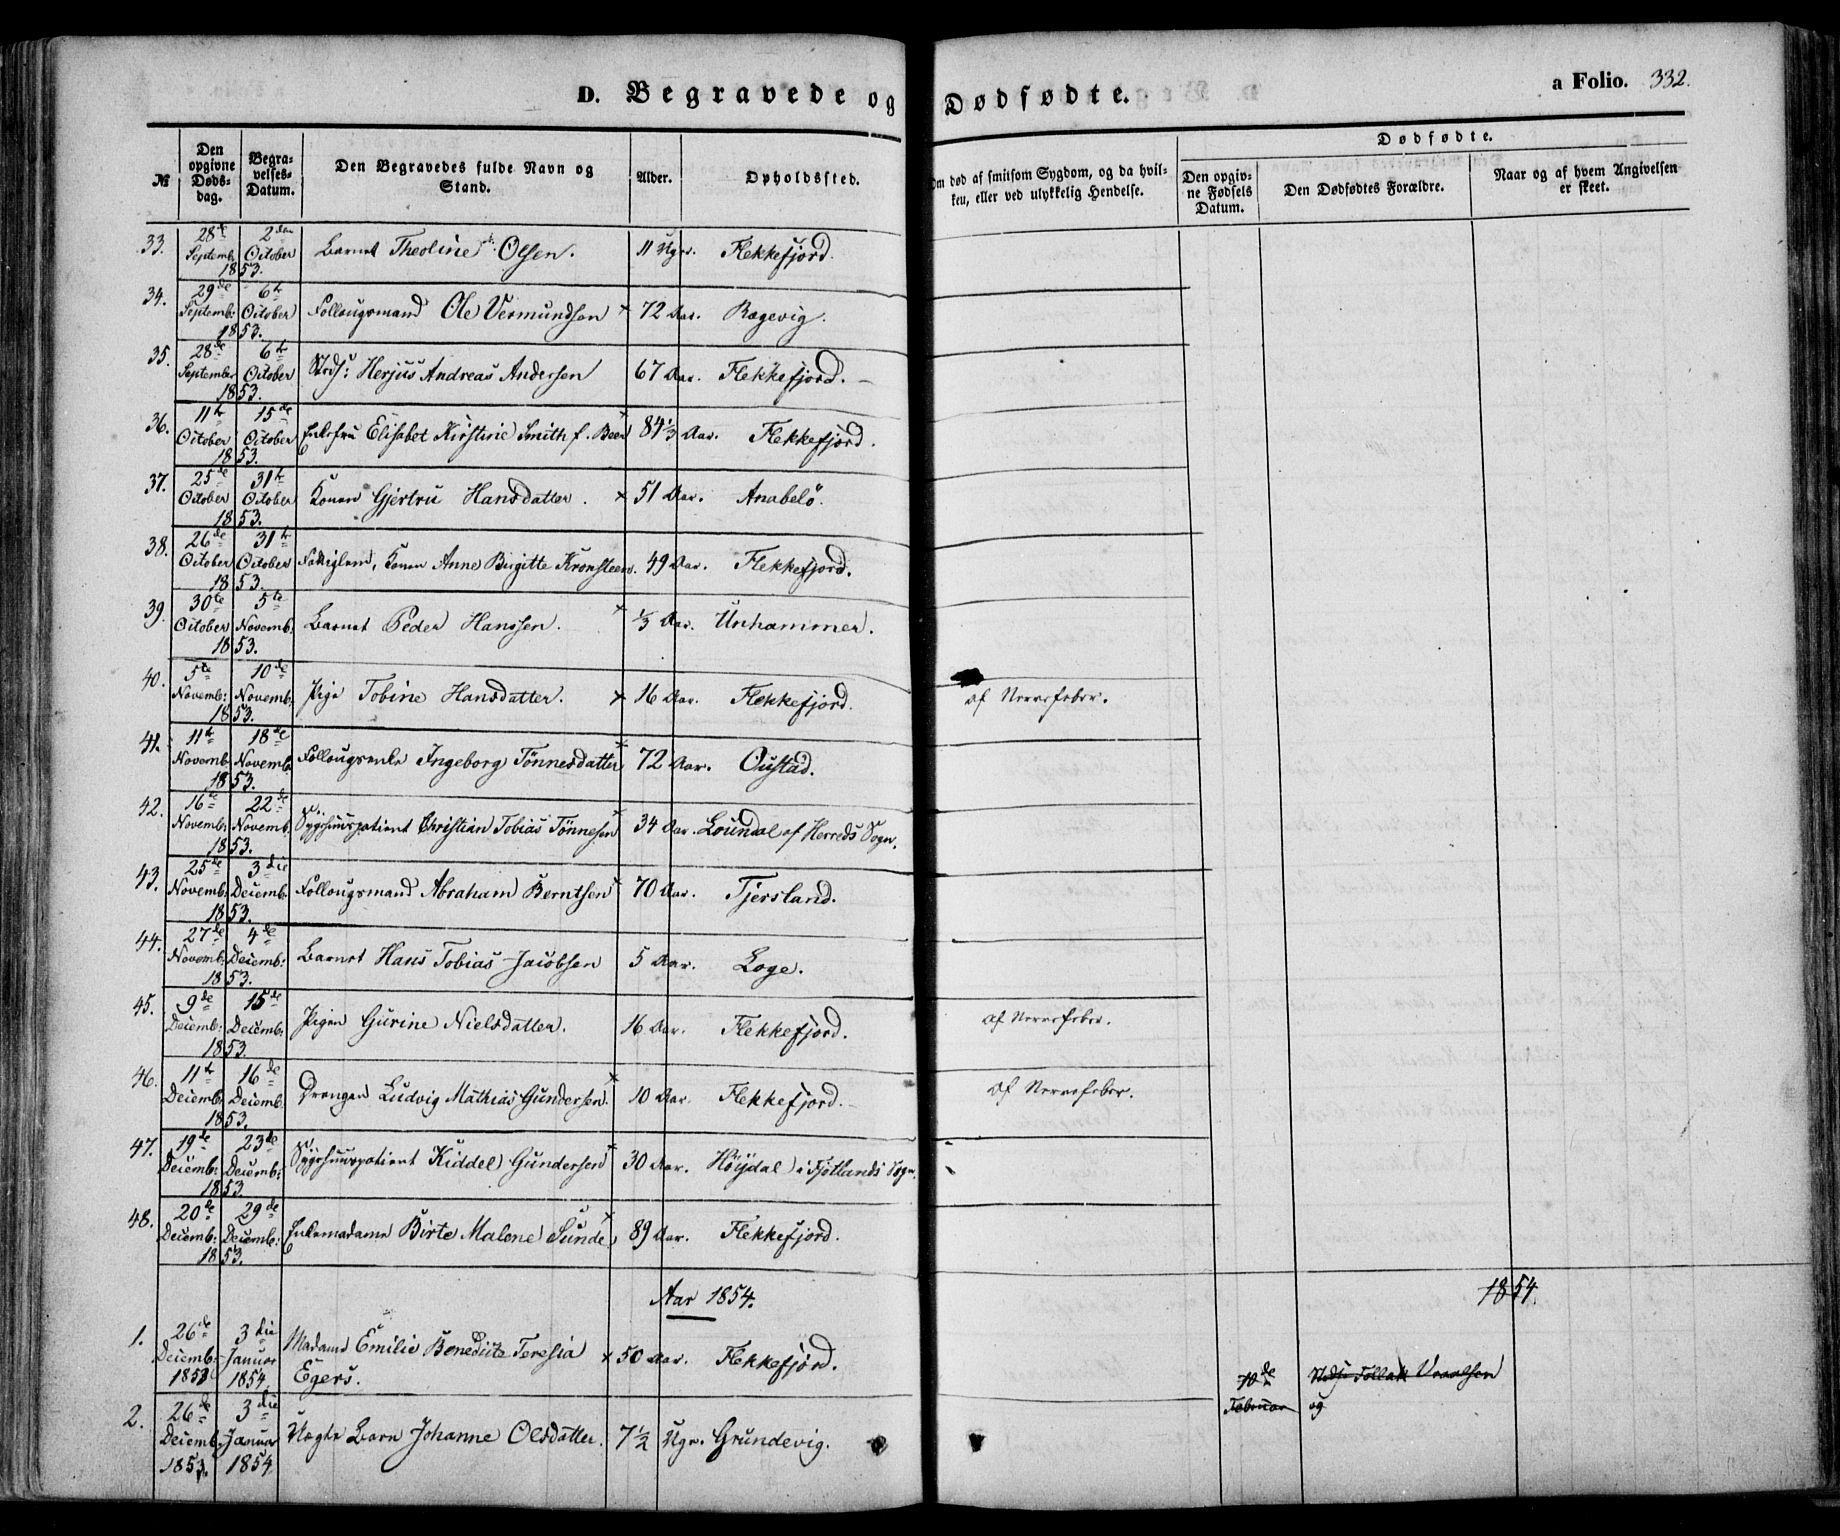 D. Begravede og Dødfødte. a Folio. 332.
№ Den opgivne Dødsdag. Begravelses-Datum. Den Begravedes fulde Navn og Stand. Alder. Opholdssted. Om død af smitsom Sygdom, og da hvilken, eller ved ulykkelig Hendelse. Dødfødte. Den opgivne Fødsels Datum. Den Dødfødtes Forældre. Naar og af hvem Angivelsen er skeet.
33. 28de Septemb. 2den October 1853. Barnet Theoline Olsen. 11 Ugr. Flekkefjord.
34. 29de Septemb: 6te October 1853. Follougsmand Ole Vermundsen × 72 Aar. Rægevig.
35. 28de September 6te October 1853. Strds: Herjus Andreas Andersen 67 Aar. Flekkefjord.
36. 11te October 15de October 1853. Enkefru Elisabet Kirstine Smith f. Beer 84 1/3 Aar. Flekkefjord.
37. 25de October 31te October 1853. Konen Gjertru Hansdatter. × 51 Aar. Anabelö.
38. 26de October 31te October 1853. Fattiglem, Konen Anne Birgitte Kronsteen. 49 Aar. Flekkefjord.
39. 30te October 5te Novemb: 1853. Barnet Peder Hanssen. × 1/3 Aar. Unhammer.
40. 5te Novemb: 10de Novemb: 1853. Pige Tobine Hansdatter. × 16 Aar. Flekkefjord. af Nervefeber.
41. 11te Novemb: 18de Novemb 1853. Follougsenke Ingeborg Tönnesdatter × 72 Aar. Oustad.
42. 16de Novemb: 22de Novemb. 1853. Sygehuuspatient Christian Tobias Tönnesen × 34 Aar. Loundal af Herreds Sogn.
43. 25de Novemb: 3die Decemb. 1853. Follougsmand Abraham Berntsen × 70 Aar. Tjersland.
44. 27de Novemb: 4de Decemb: 1853. Barnet Hans Tobias Jacobsen 5 Aar. Loge.
45. 9de Decemb: 15de Decemb: 1853. Pigen Gurine Nielsdatter. 16 Aar. Flekkefjord. af Nervefeber.
46. 11te Decemb: 16de Decemb. 1853. Drengen Ludvig Mathias Gundersen. × 10 Aar. Flekkefjord. af Nervefeber.
47. 19de Decemb: 23de Decemb: 1853. Sygehuuspatient Kiddel Gundersen × 30 Aar. Höydal i Fjotlands Sogn.
48. 20de Decemb: 29de Decemb: 1853. Enkemadame Birte Malene Sunde × 89 Aar. Flekkefjord.
Aar 1854. 1854.
1. 26de Decemb: 1853 3die Januar 1854. Madame Emilie Benedicte Teresia Egers. × 50 Aar. Flekkefjord. 10de Februar Strds: Tollak Vraalsen og
2. 26de Decemb. 1853. 3die Januar 1854 Uægte Barn Johanne Olsdatter. 7 1/2 Ugr. Grundevig.